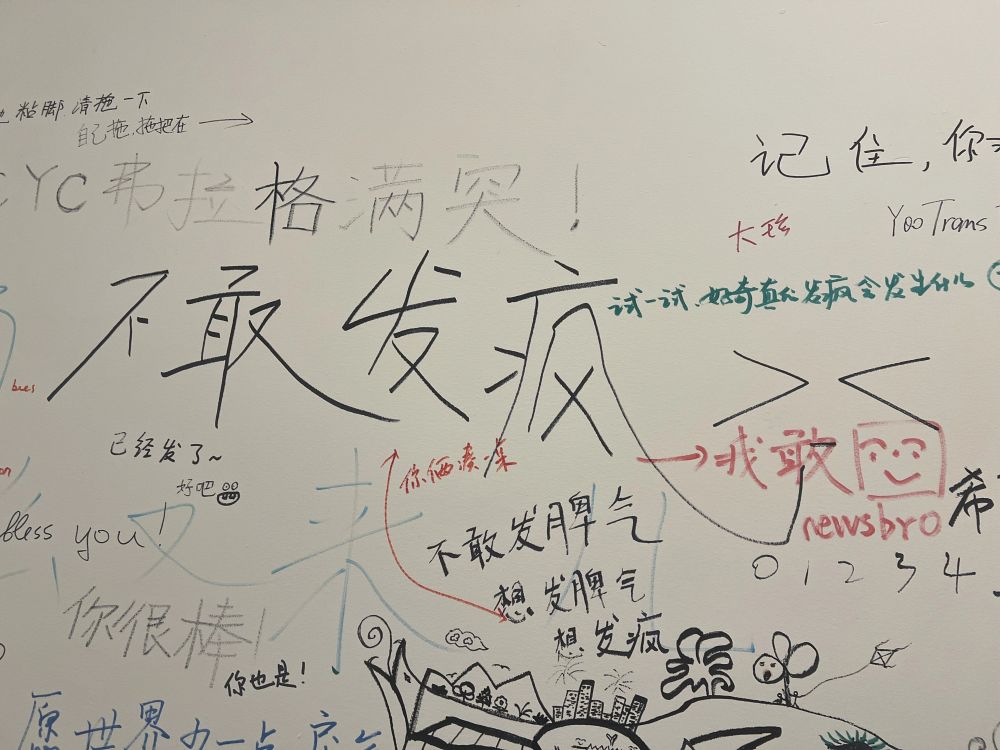 粘脚,请拖一下
自己拖,拖把在
YC弗拉格满突!
记住,你
大
YooTrans
不敢发疯
试一试,好奇真的发疯会发生什么
> <
已经发了~
好吧
你俩凑一桌
我敢
newsbro
bless you!
又来
希
不敢发脾气
想发脾气
想发疯
0 1 2 3 4
你很棒!
你也是!
愿世界少一点戾气